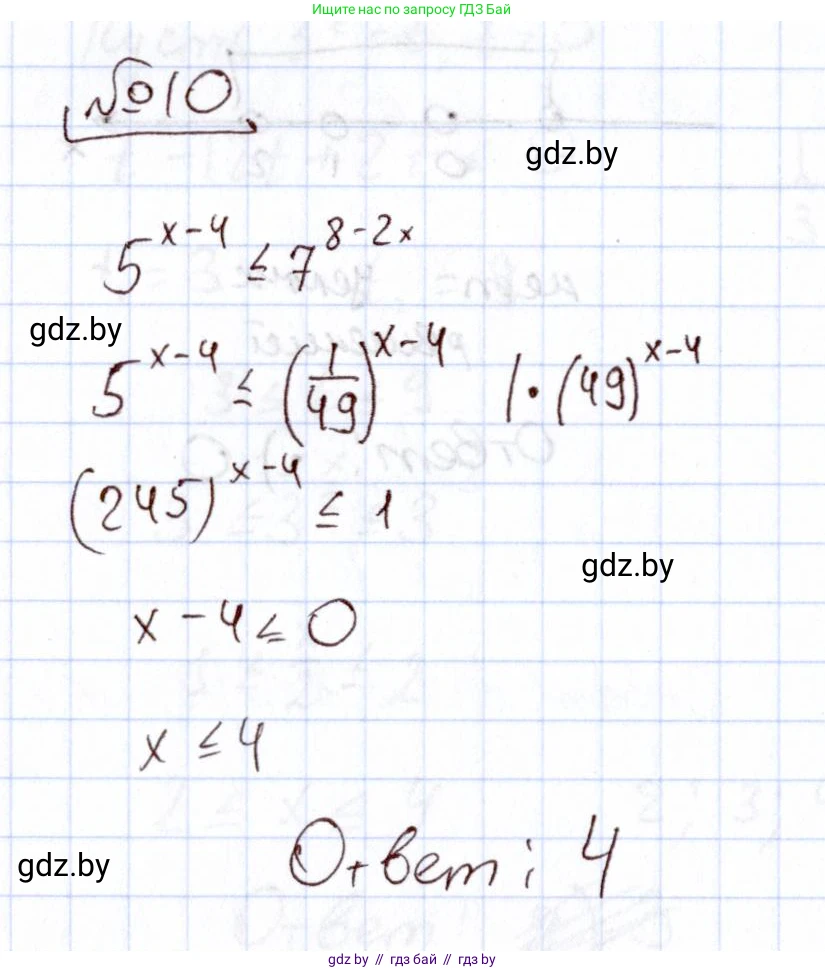 Ищите нас по запросу ГДЗ Бай
№ 10
gdz.by
5^(x-4) ≤ 7^(8-2x)
gdz.by
5^(x-4) ≤ (1/49)^(x-4) | · (49)^(x-4)
(245)^(x-4) ≤ 1
gdz.by
x - 4 ≤ 0
x ≤ 4
Ответ: 4
gdz.by
gdz.by // гдз бай // гдз.by